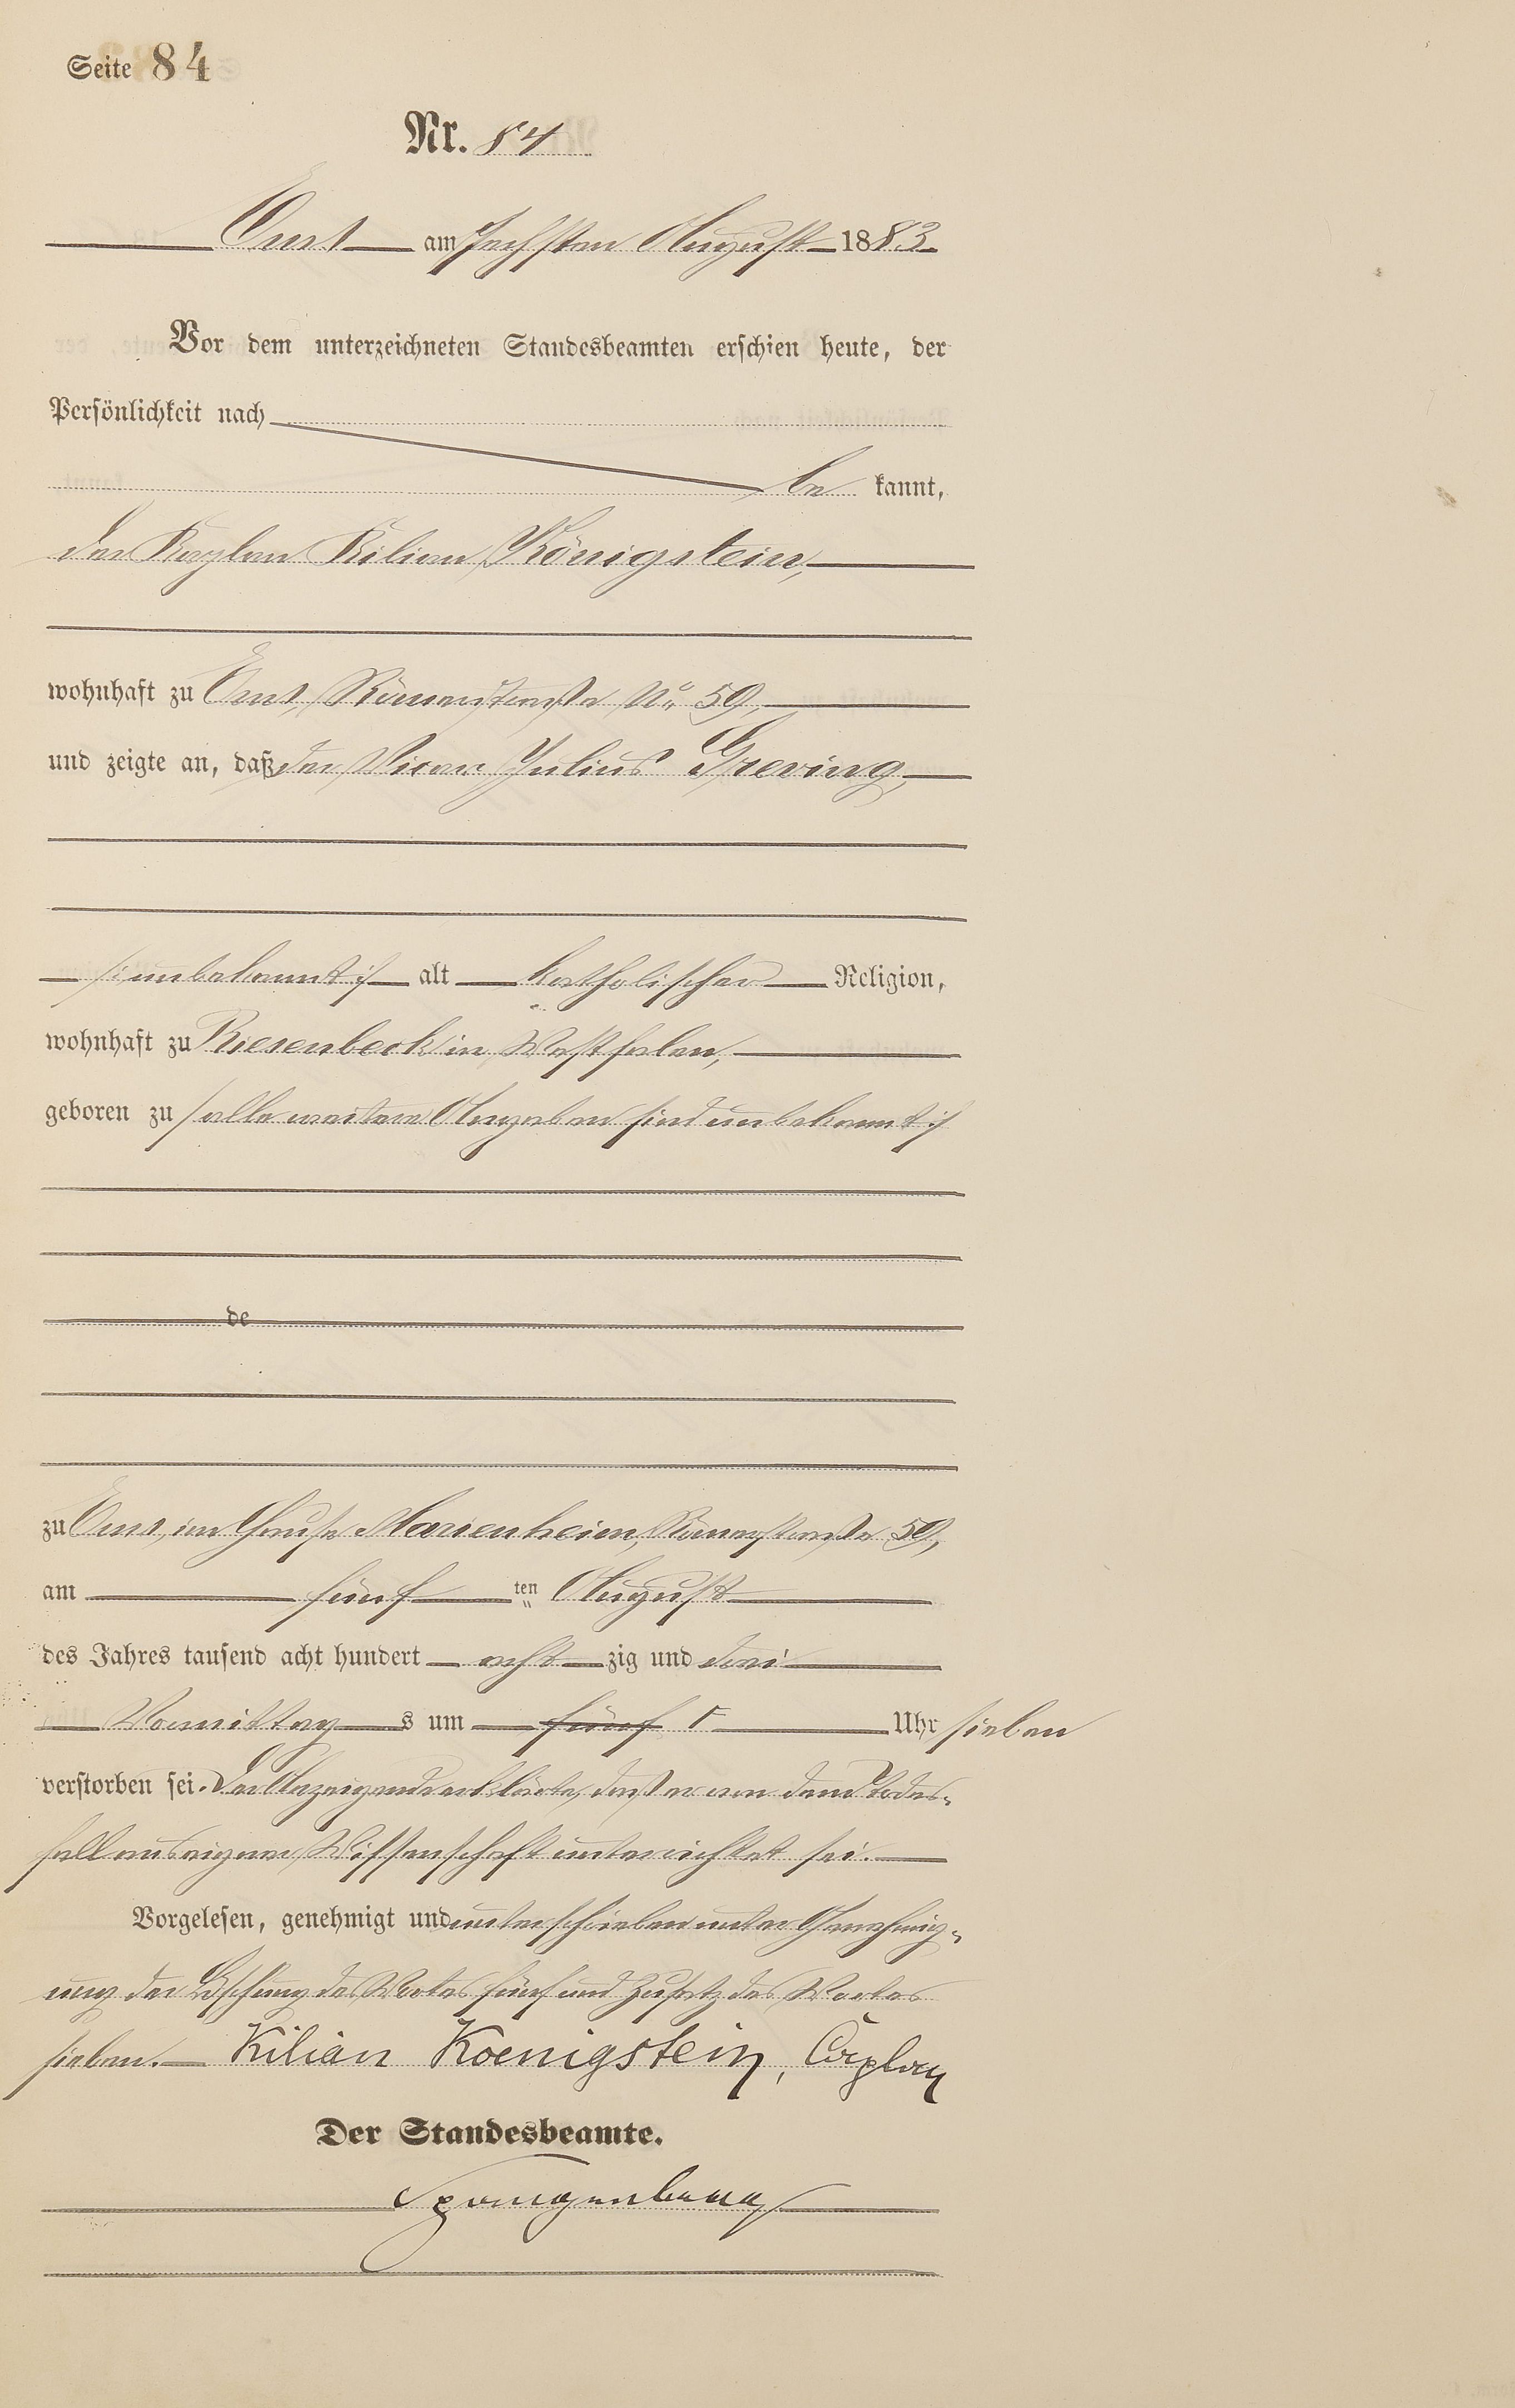 Seite 84
Nr. 84
Ems am sechsten August 1883.
Vor dem unterzeichneten Standesbeamten erschien heute, der
Persönlichkeit nach
be kannt,
der Kaplan Kilian Königstein,
wohnhaft zu Ems, Römerstraße No 59,
und zeigte an, daß der Vicar Julius Greving,
/: unbekannt :/ alt katholischer Religion,
wohnhaft zu Riesenbeck in Westfalen,
geboren zu /: alle weitere Angaben sind unbekannt :/
de
zu Ems, im Hause Marienheim, Römerstraße 59,
am fünf ten August
des Jahres tausend acht hundert acht zig und drei
Vormittag s um fünf Uhr sieben
verstorben sei. Der Anzeigende erklärte, daß er von dem Todes-
fall aus eigener Wissenschaft unterrichtet sei.
Vorgelesen, genehmigt und unterschrieben unter Genehmig-
ung der Löschung des Wortes fünf und Zusatz des Wortes
sieben. Kilian Koenigstein, Caplan
Der Standesbeamte.
Spangenberg